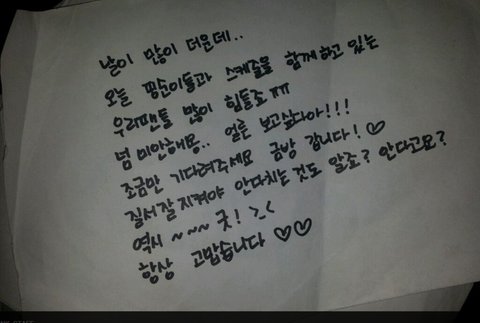 날이 많이 더운데..
오늘 팡순이들과 스케줄을 함께하고 있는
우리팬들 많이 힘들죠ㅠㅠ
넘 미안해요.. 얼른 보고싶다아!!!
조금만 기다려주세요 금방 갑니다!♡
질서 잘 지켜야 안다치는것도 알죠? 안다고요?
역시 ~~~ 굿! >.<
항상 고맙습니다 ♡♡